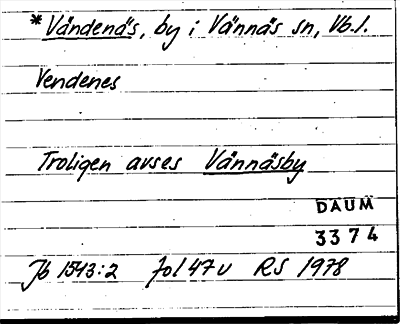 *Vändenäs, by i Vännäs sn, Vb.l.
Vendenes
Troligen avses Vännäsby
DAUM
3374
Jb 1543:2 fol 47v RS 1978